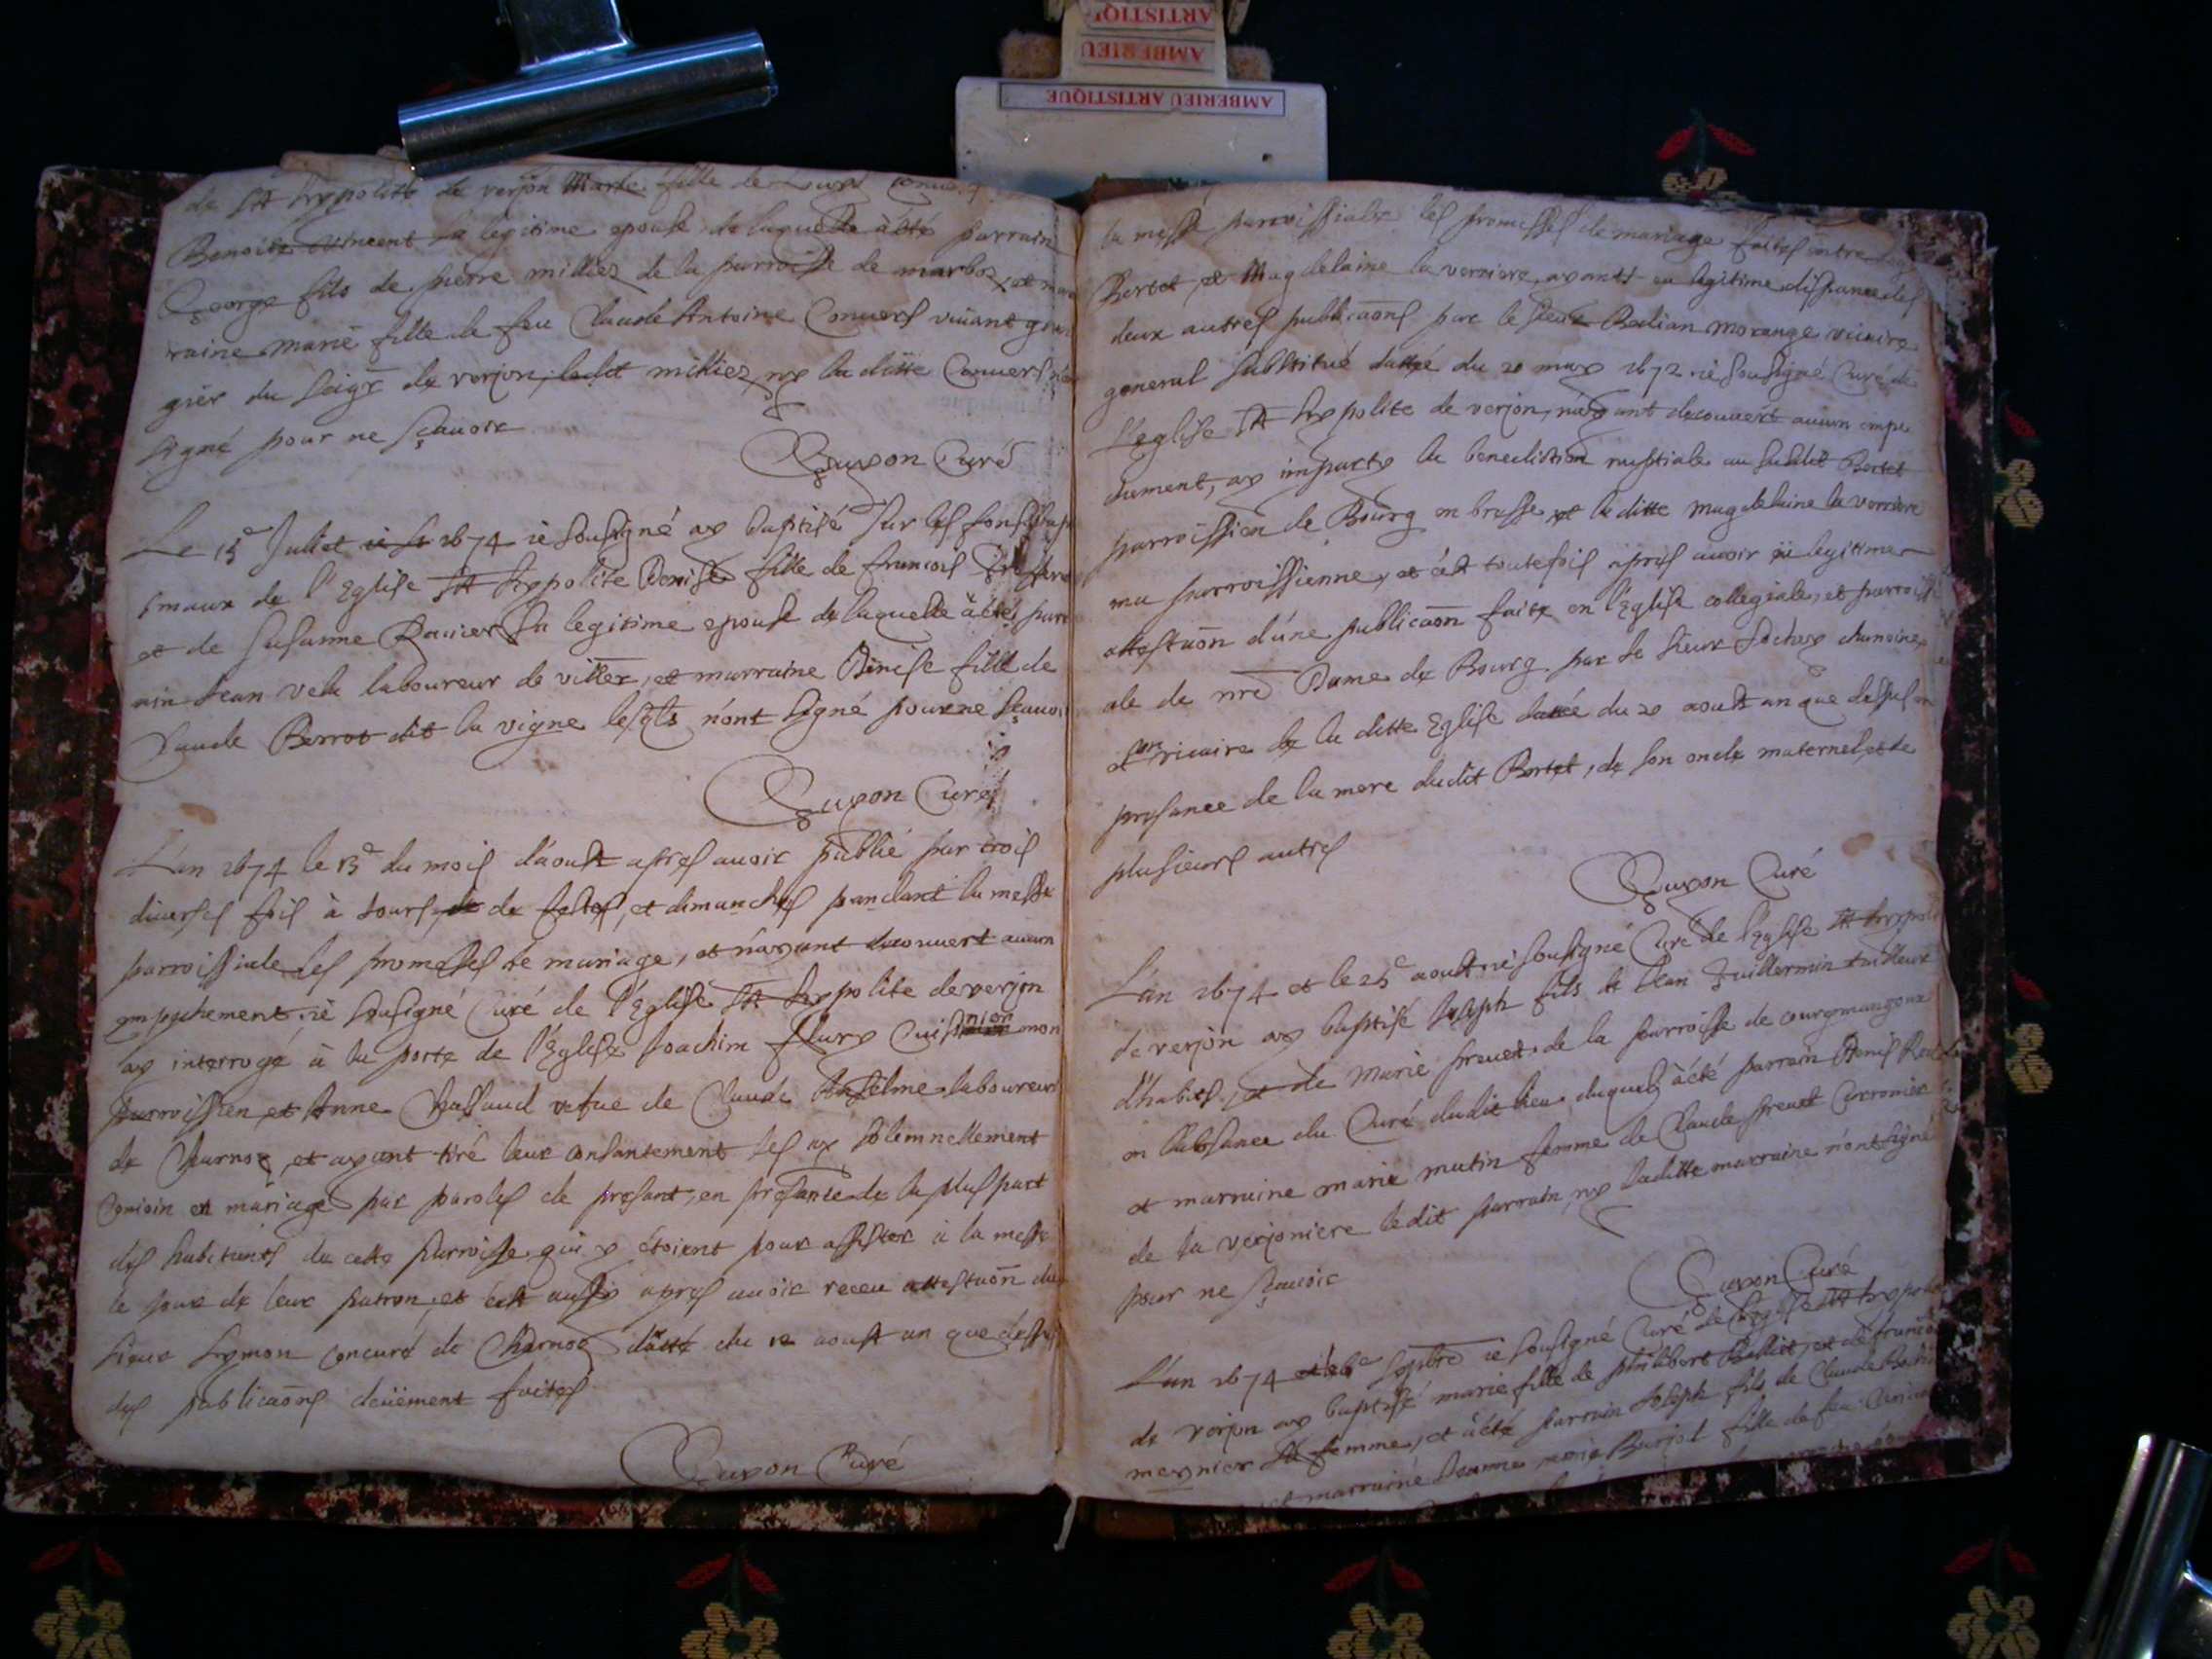 ARTISTIQ
AMBERIEU
AMBERIEU ARTISTIQUE
de St hypolite de verjon Marie fille de
Benoite Vincent sa legitime epouse de laquelle à été parrain
George fils de pierre milliez de la parroisse de marboz, et mar
raine marie fille de feu Claude Antoine Convers vivant gran
gier du seigr de verjon, ledit milliez, ny la ditte Convers n'
signé pour ne sçavoir
Guyon Curé
Le 15e Juliet 1674 ie sousigné ay baptisé sur les fons bap
smaux de l'Eglise St hypolite Denise fille de francois
et de susanne Ravier sa legitime epouse de laquelle à été parr
ain Jean vela laboureur de viller, et marraine Denise fille de
Claude Berrot dit la vigne lesqls n'ont signé pour ne sçauoi
Guyon Curé
L'an 1674 le 13e du mois d'aoust apres auoir publié par trois
diuerses fois à jours de festes, et dimanches pandant la messe
parroissiale les promesses de mariage, et n'ayant decouuert aucun
empechement ie sousigné Curé de l'Eglise St hypolite de verjon
ay interrogé à la porte de l'Eglise Joachim flury mon
parroissien et Anne Chassaud vefue de Claude Anselme laboureur
de Charnoz, et ayant tiré leur consantement les ay solemnellement
conioin en mariage par paroles de presant, en presance de la plus part
des habitants de cette parroisse qui y étoient pour assister à la messe
le jour de leur patron, et c'est aussy apres auoir receu attestaon du
sieur Symon concuré de Charnoz dattée du 12 aoust an que dessus
des publicaons deüement faites
Guyon Curé
la messe parroissiale les promesses de mariage faites entre
Bertet, et Magdelaine la verniere, ayants eu legitime dispance des
deux autres publicaons par le sieur Bedian morange vicaire
general substitué dattée du 20 may 1672 ie sousigné Curé de
l'eglise St hypolite de verjon, n'ayant decouuert aucun empe
chement, ay imparty la benediction nuptiale au susdit Bertet
parroissien de Bourg en bresse et la ditte magdelaine la verniere
ma parroissienne, et c'est toutefois apres auoir eü legitime
attestaon d'une publicaon faite en l'Eglise collegiale, et parroissi
ale de nre Dame de Bourg par le sieur chanoine
et vicaire de la ditte Eglise dattée du 20 aoust an que dessus en
presance de la mere dudit Bertet, de son oncle maternel, et de
plusieurs autres
Guyon Curé
L'an 1674 et le 25e aoust ie sousigné Curé de l'Eglise St hypoli
de verjon ay baptisé Joseph fils de Jean Guillermin tailleur
d'habits, et de Marie preuet de la parroisse de courgmangoux
en l'absance du Curé dudit lieu duquel à été parrain Denis
et marraine marie mutin femme de Claude preuet Cordonier
de la verjoniere ledit parrain, ny laditte marraine n'ont signé
pour ne sçauoir
Guyon Curé
L'an 1674 septbre ie sousigné Curé de l'Eglise St hypoli
de verjon ay baptisé marie fille de philibert Balliet, et de franco
meynier sa femme, et à été parrain Joseph fils de Claude
et marraine Jeanne marie Burjol fille de feu